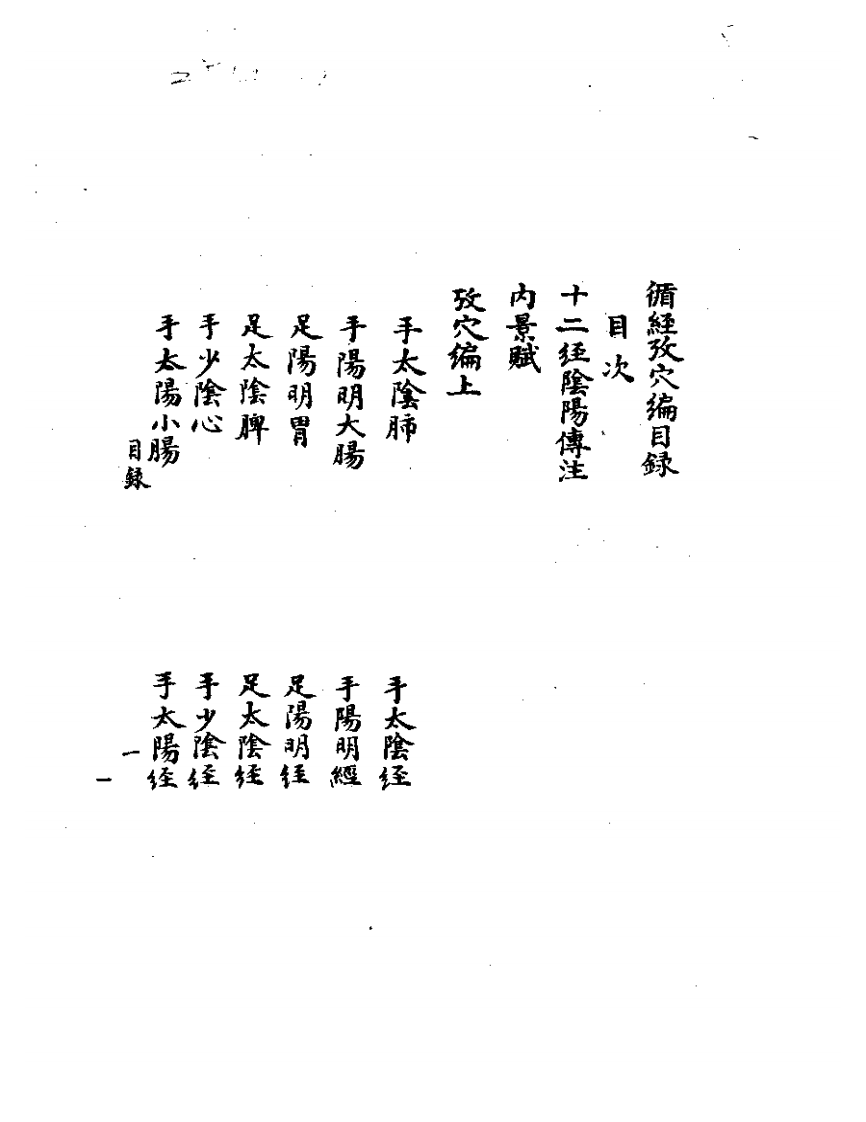 循經攷穴編目録
目次
十二経陰陽傳注
内景賦
攷穴編上
手太陰肺　手太陰経
手陽明大腸　手陽明經
足陽明胃　足陽明経
足太陰脾　足太陰経
手少陰心　手少陰経
手太陽小腸　手太陽経
目録　一
一